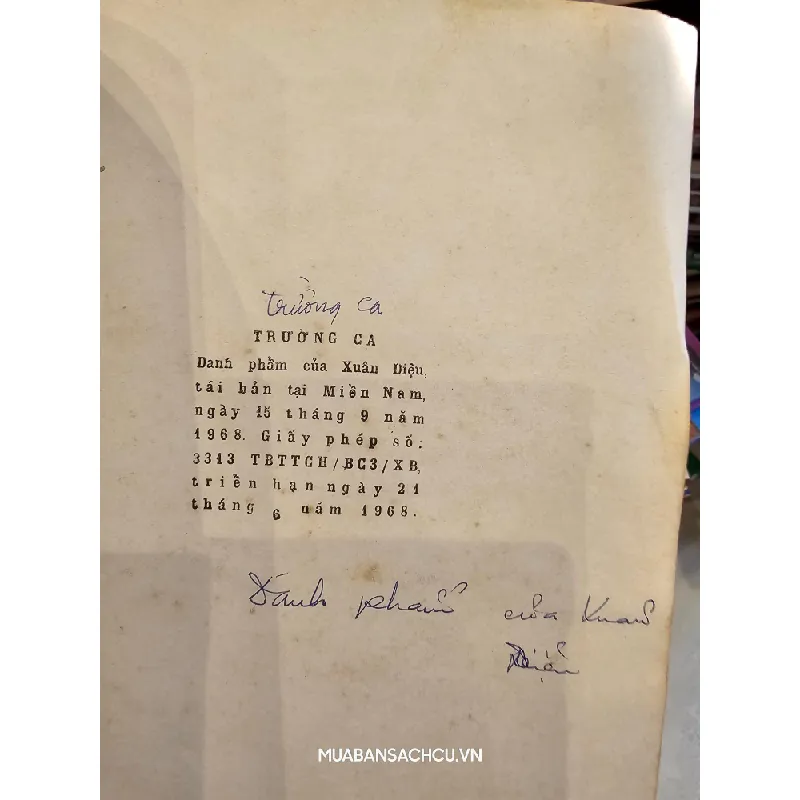 trường ca
TRƯỜNG CA
Danh phẩm của Xuân Diệu,
tái bản tại Miền Nam,
ngày 15 tháng 9 năm
1968. Giấy phép số:
3313 TBTTCH/BC3/XB,
triển hạn ngày 21
tháng 6 năm 1968.
Danh phẩm của Xuân
Diệu
MUABANSACHCU.VN